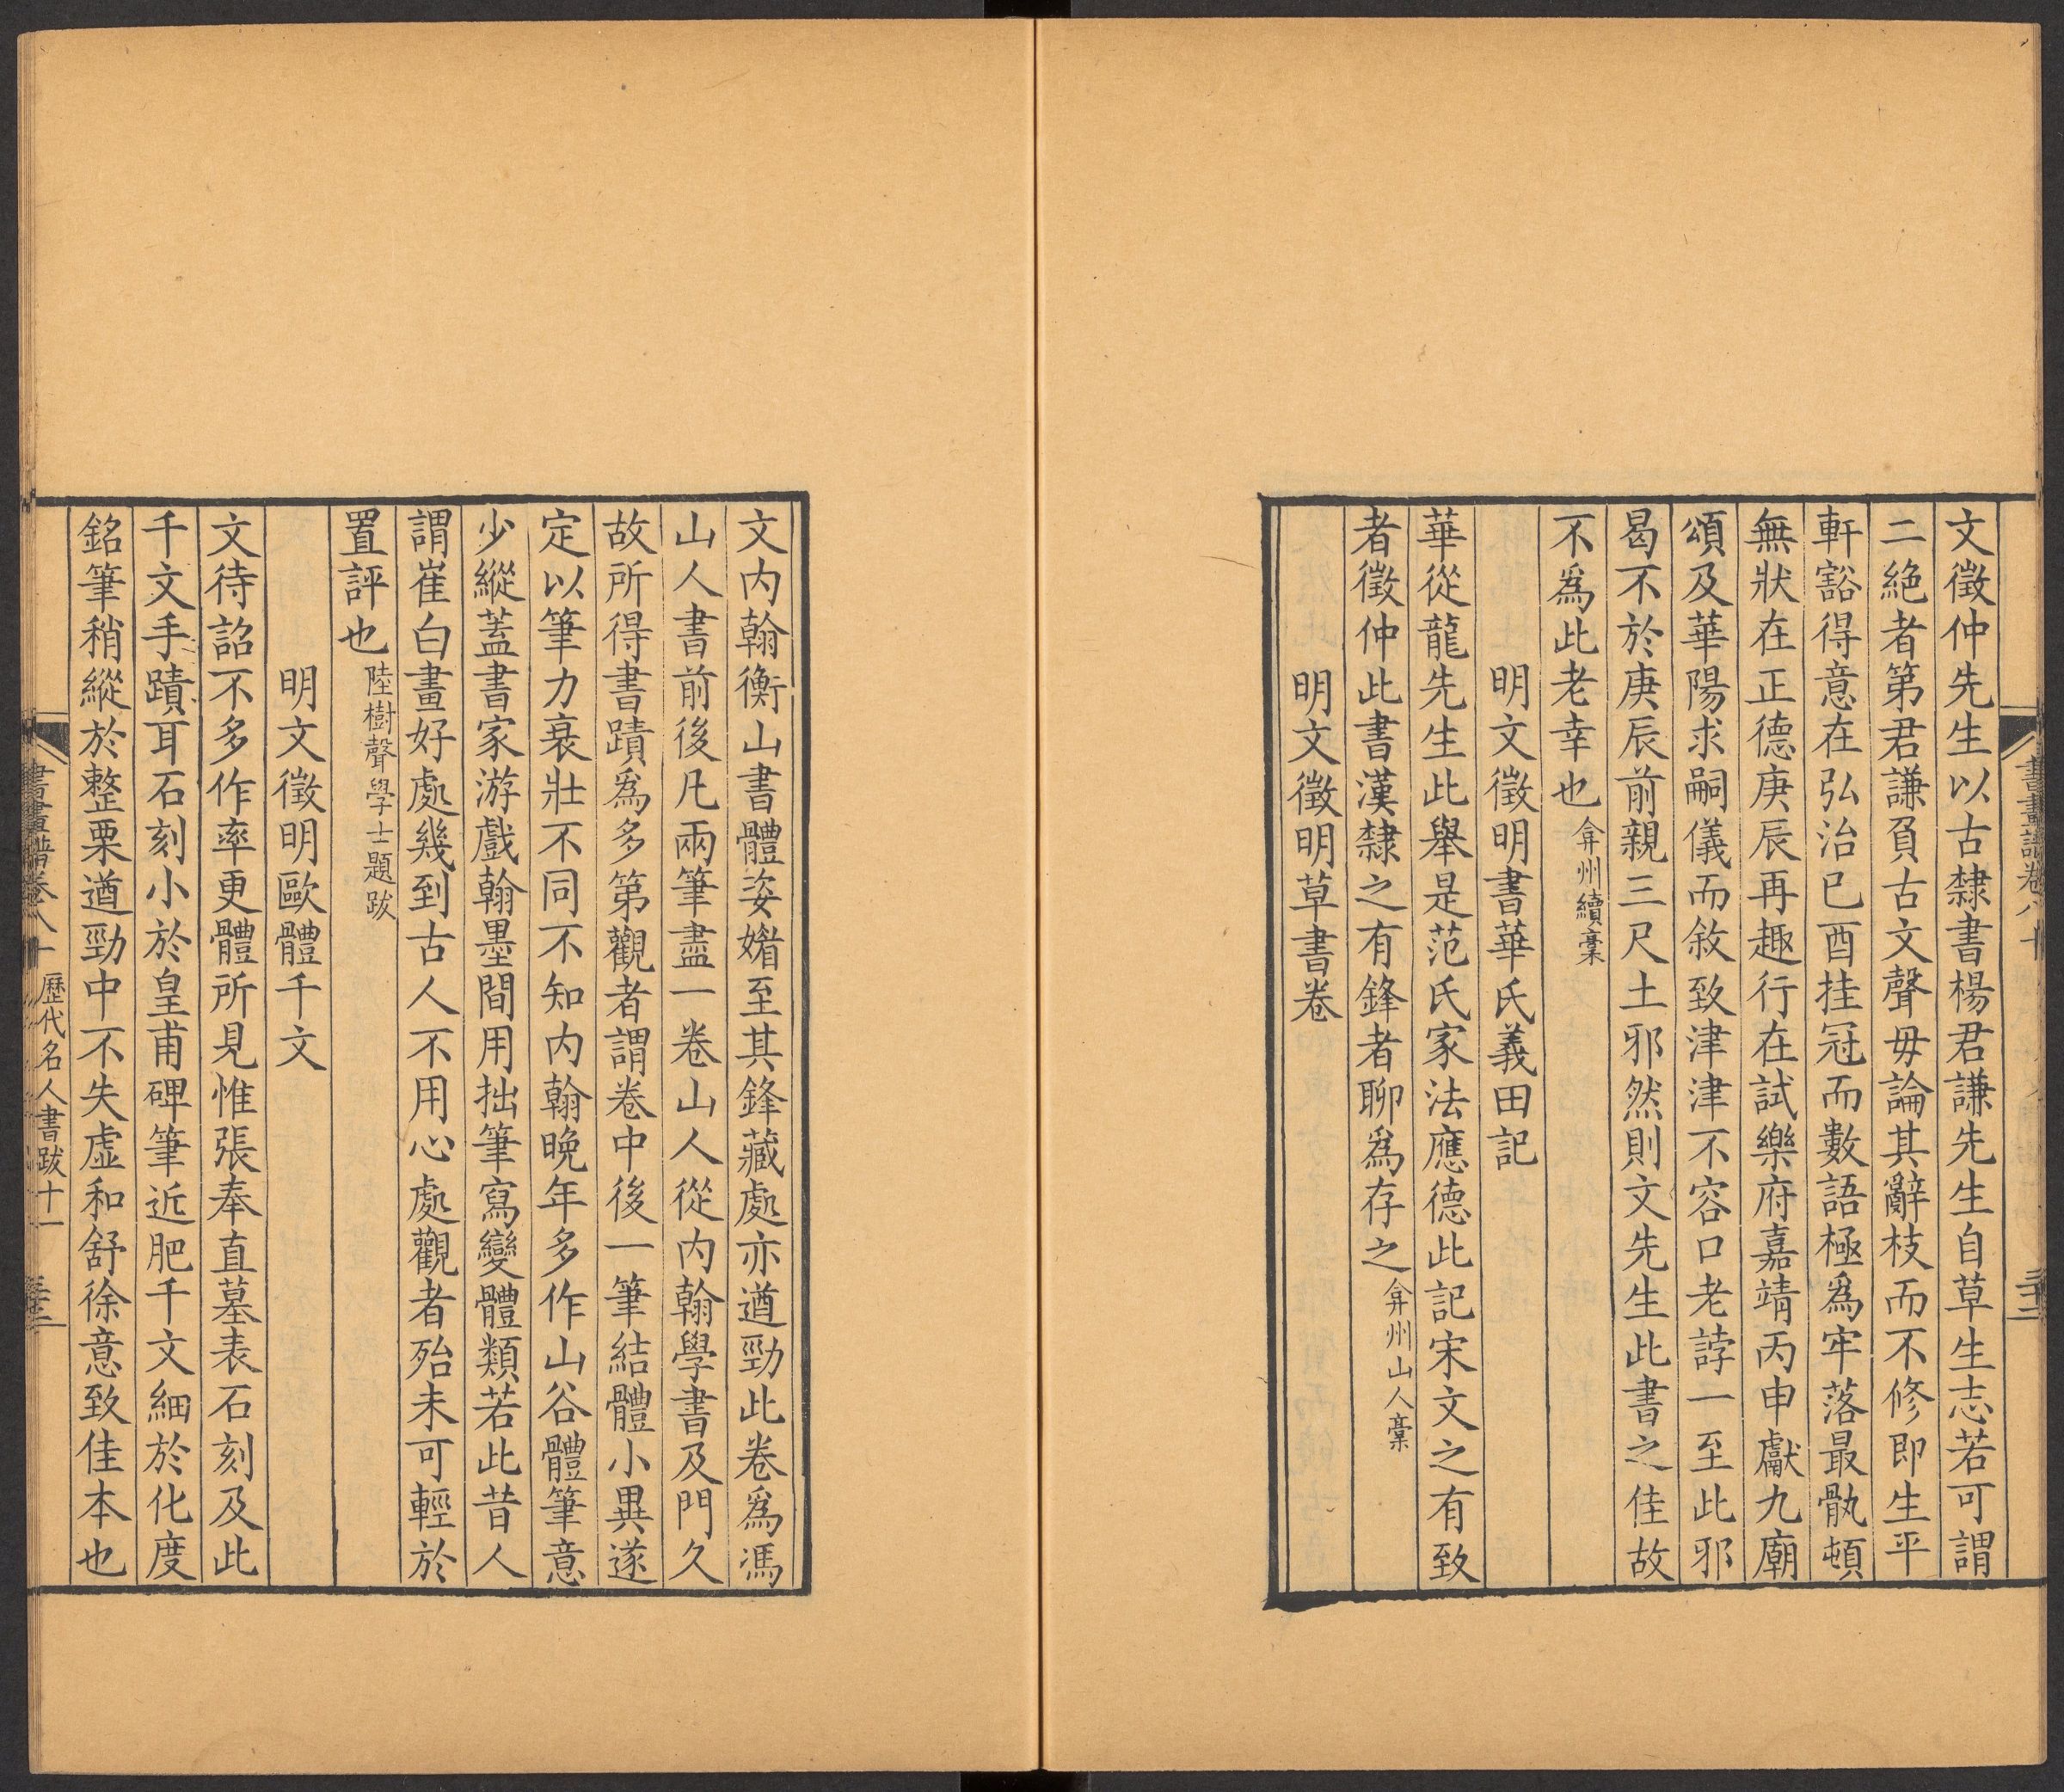 文徵仲先生以古隸書楊君謙先生自草生志若可謂
二絶者第君謙負古文聲毋論其辭枝而不修即生平
軒豁得意在弘治已酉挂冠而數語極爲牢落最骫頓
無狀在正德庚辰再趣行在試樂府嘉靖丙申獻九廟
頌及華陽求嗣儀而敘致津津不容口老誖一至此邪
曷不於庚辰前親三尺土邪然則文先生此書之佳故
不爲此老幸也弇州續稾
明文徵明書華氏義田記
華從龍先生此舉是范氏家法應德此記宋文之有致
者徵仲此書漢隸之有鋒者聊爲存之弇州山人稾
明文徵明草書卷
書畫譜卷八十
文内翰衡山書體姿媚至其鋒藏處亦遒勁此卷爲馮
山人書前後凡兩筆盡一卷山人從内翰學書及門久
故所得書蹟爲多第觀者謂卷中後一筆結體小異遂
定以筆力衰壯不同不知内翰晩年多作山谷體筆意
少縱蓋書家游戲翰墨間用拙筆寫變體類若此昔人
謂崔白畫好處幾到古人不用心處觀者殆未可輕於
置評也陸樹聲學士題跋
明文徵明歐體千文
文待詔不多作率更體所見惟張奉直墓表石刻及此
千文手蹟耳石刻小於皇甫碑筆近肥千文細於化度
銘筆稍縱於整栗遒勁中不失虚和舒徐意致佳本也
書畫譜卷八十 歷代名人書跋十一